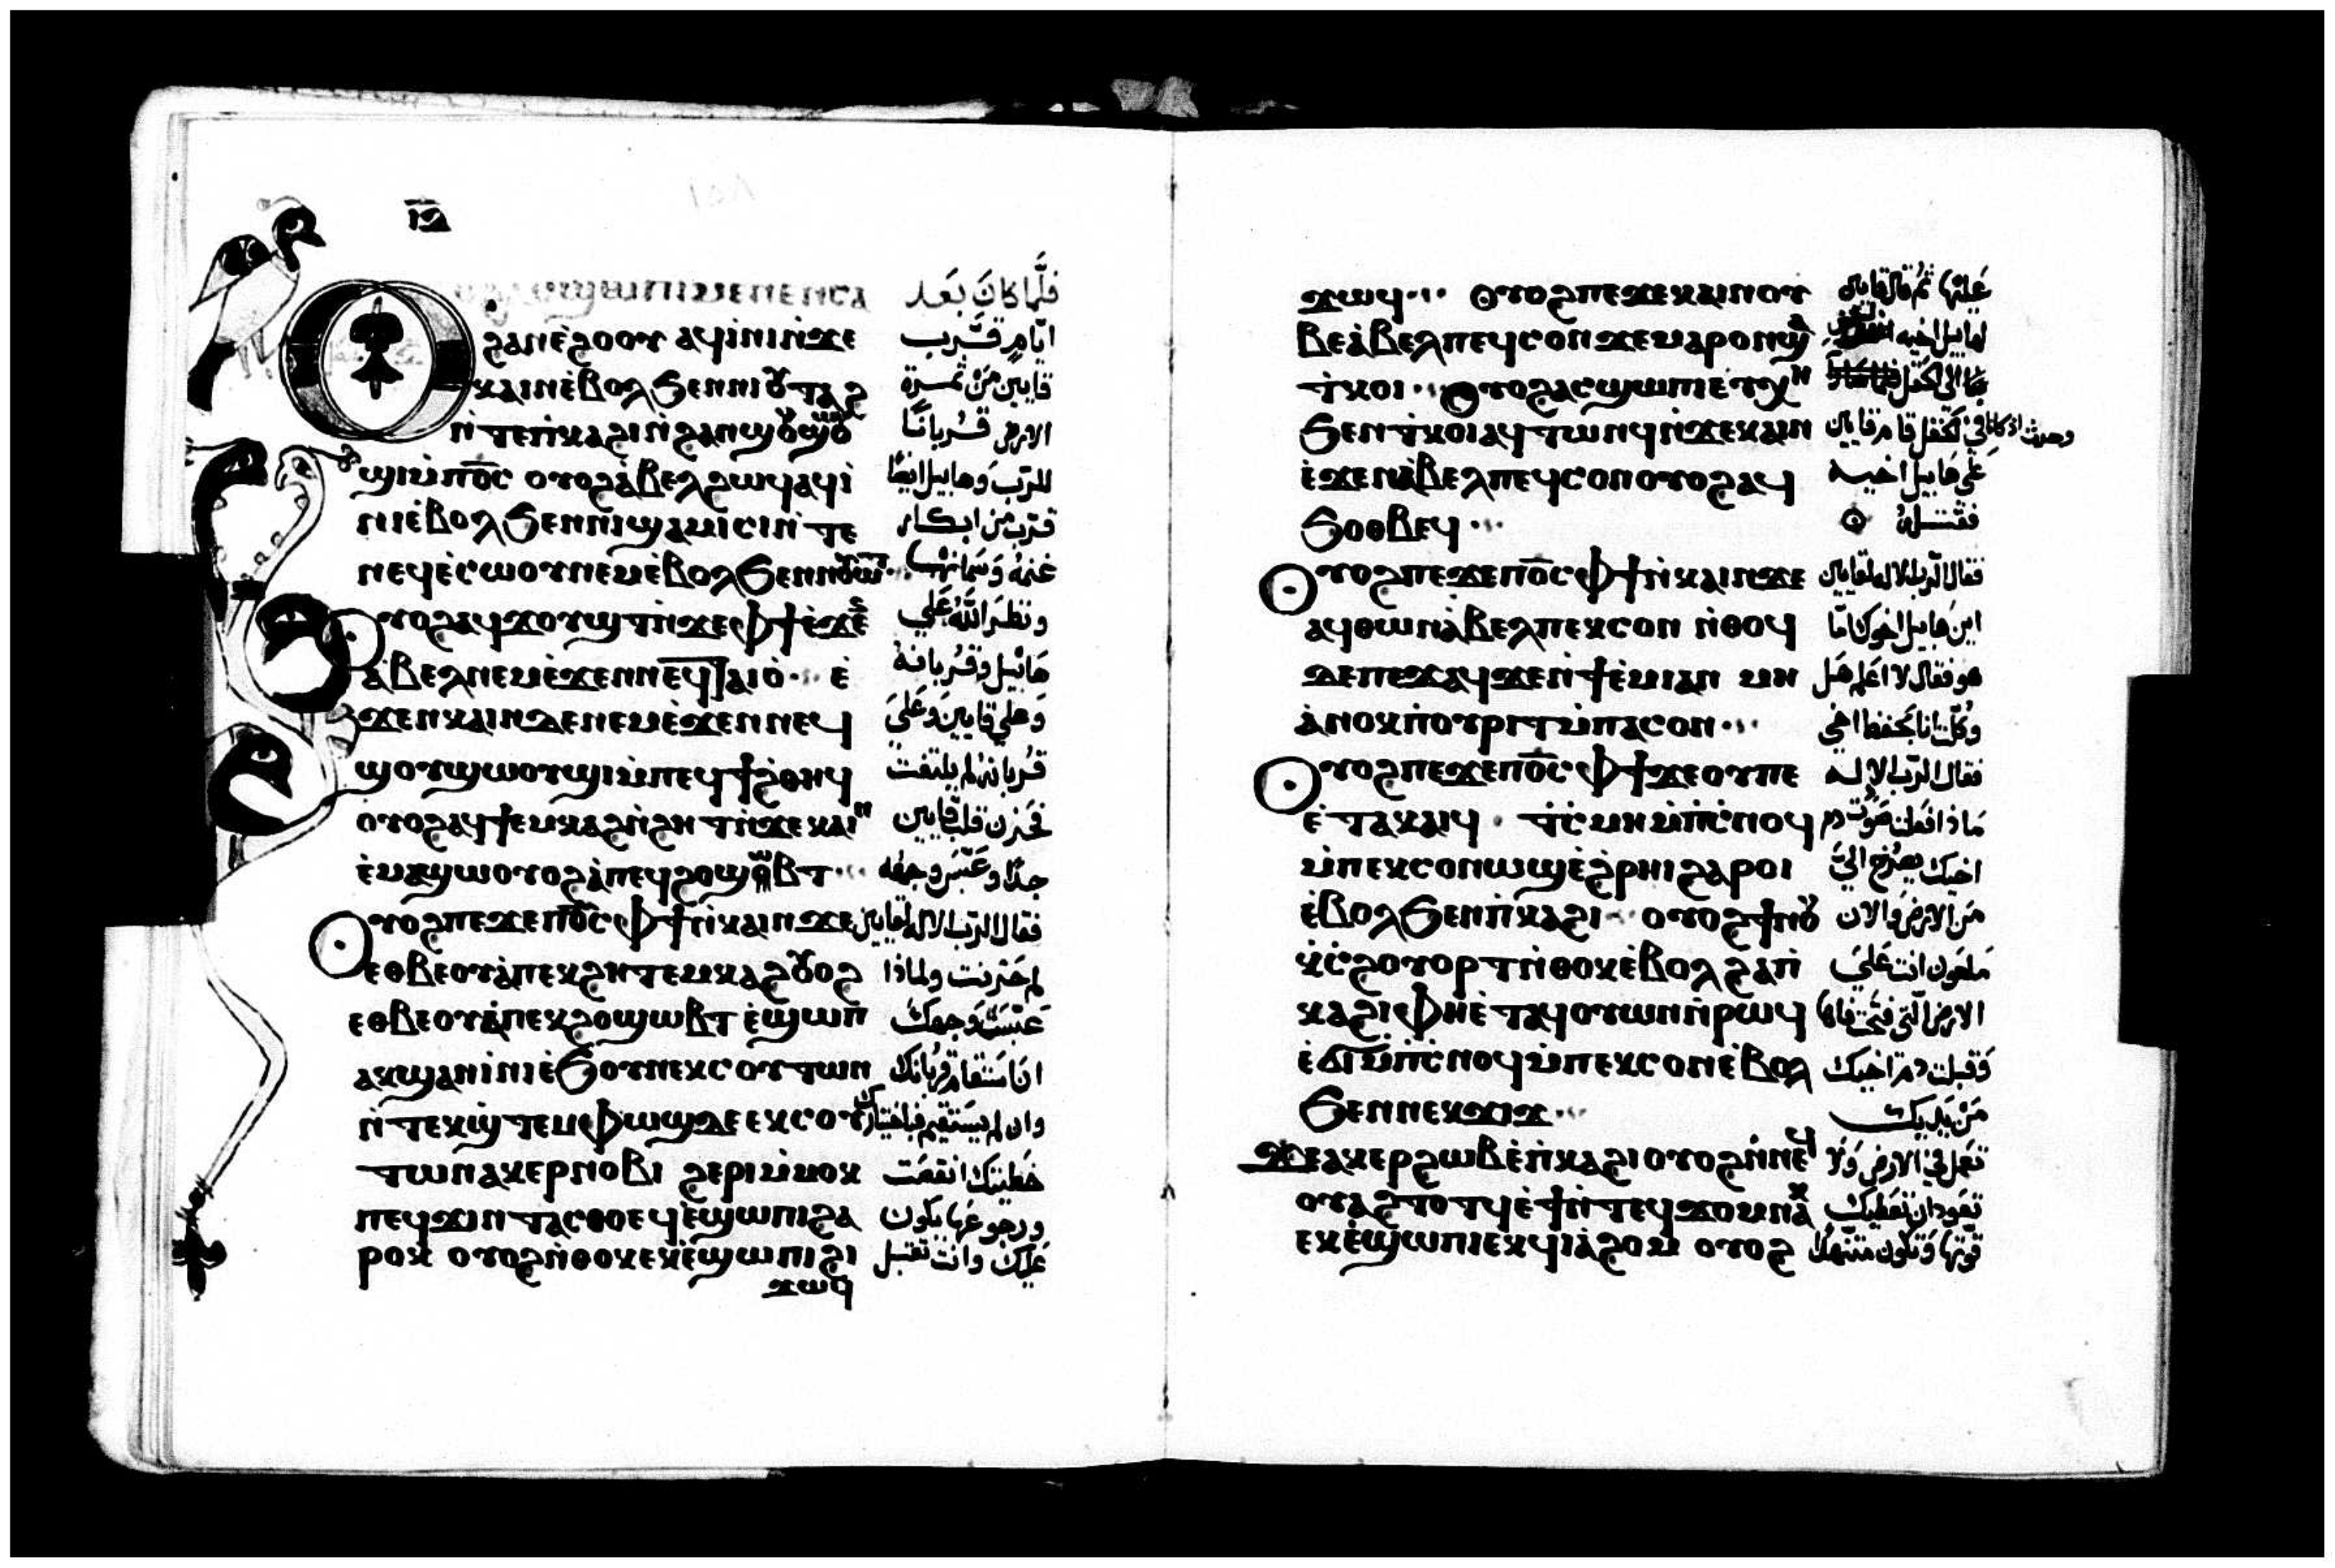 ⲓ̅ⲍ̅
ⲟⲩⲟϩ ⲁⲥϣⲱⲡⲓ ⲙⲉⲛⲉⲛⲥⲁ فَلَّما كانَ بَعَد
ϩⲁⲛⲉ̀ϩⲟⲟⲩ ⲁϥⲓ̀ⲛⲓ ⲛ̀ϫⲉ ايّامٍ قـَّرب
ⲕⲁⲓⲛ ⲉ̀ⲃⲟⲗ ϧⲉⲛ ⲛⲓⲟⲩⲧⲁϩ قايين مَنْ ثمـرة
ⲛ̀ⲧⲉ ⲡ̀ⲕⲁϩⲓ ⲛ̀ϩⲁⲛϣⲟⲩϣⲱⲟⲩ الارض قـُربانًا
ϣⲓ ⲙ̀ⲡⲟ̅ⲥ̅ ⲟⲩⲟϩ ⲁ̀ⲃⲉⲗ ϩⲱϥ ⲁϥⲓ̀ للرّب وَهابيل ايضًا
ⲛⲓ ⲉ̀ⲃⲟⲗ ϧⲉⲛ ⲛⲓϣⲁⲙⲓⲥⲓ ⲛ̀ⲧⲉ قرّب من ابكار
ⲛⲉϥⲉ̀ⲥⲱⲟⲩ ⲛⲉⲙ ⲉ̀ⲃⲟⲗ ϧⲉⲛ ⲛⲟⲩⲱⲧ غنمهُ وَسمانها
ⲟⲩⲟϩ ⲁϥϫⲟⲩϣⲧ ⲛ̀ϫⲉ ⲫϯ ⲉ̀ϫⲉⲛ ونظـَر اللهُ عَلي
ⲁ̀ⲃⲉⲗ ⲛⲉⲙ ⲉ̀ϫⲉⲛ ⲛⲉϥⲧⲁⲓⲟ̀ · ⲉ̀ هَابيل وقـُربانهُ
ϫⲉⲛ ⲕⲁⲓⲛ ⲇⲉ ⲛⲉⲙ ⲉ̀ϫⲉⲛ ⲛⲉϥ وَعلي قايين وَعَلي
ϣⲟⲩϣⲱⲟⲩϣⲓ ⲙ̀ⲡⲉϥϯϩ̀ⲑⲏϥ قـُربانهُ لم يلتفت
ⲟⲩⲟϩ ⲁϥϯⲉⲙⲕⲁϩ ⲛ̀ϩⲏⲧ ⲛ̀ϫⲉ ⲕⲁⲓⲛ فحزن قلب قايين
ⲉ̀ⲙⲁϣⲱ ⲟⲩⲟϩ ⲁ̀ ⲡⲉϥϩⲟ ϣⲱⲃⲧ جدًا وعَبّسَ وجهه
ⲟⲩⲟϩ ⲡⲉϫⲉ ⲡⲟ̅ⲥ̅ ⲫϯ ⲛ̀ⲕⲁⲓⲛ ϫⲉ فقال الرّب الاله لقايين
ⲉⲑⲃⲉ ⲟⲩ ⲁ̀ ⲡⲉⲕϩⲏⲧ ⲉⲙⲕⲁϩ ⲟⲩⲟϩ لم حَزنت ولماذا
ⲉⲑⲃⲉ ⲟⲩ ⲁ̀ ⲡⲉⲕϩⲟ ϣⲱⲃⲧ ⲉ̀ϣⲱⲡ عَبّسَت وَجهكَ
ⲁⲕϣⲁⲛⲓ̀ⲛⲓ ⲉ̀ϧⲟⲩⲛ ⲉⲕⲥⲟⲩⲧⲱⲛ ان استقام قربانكَ
ⲛ̀ⲧⲉⲕϣ̀ⲧⲉⲙⲫⲱϣ ⲇⲉ ⲉⲕⲥⲟⲩ وان لم يستقيم فباختيارك
ⲧⲱⲛ ⲁⲕⲉⲣⲛⲟⲃⲓ ϩⲉⲣⲓ ⲙ̀ⲙⲟⲕ خَطيتكَ انقمَت
ⲡⲉϥϫⲓⲛⲧⲁⲥⲑⲟ ⲉϥⲉ̀ϣⲱⲡⲓ ϩⲁ ورجوعها يكون
ⲣⲟⲕ ⲟⲩⲟϩ ⲛ̀ⲑⲟⲕ ⲉⲕⲉ̀ϣⲱⲡⲓ ϩⲓ عَليكَ وانت تقبل
ϫⲱϥ
ϫⲱϥ ⲟⲩⲟϩ ⲡⲉϫⲉ ⲕⲁⲓⲛ ⲟⲩ عَليها ثم قال قايين
ⲃⲉ ⲁ̀ⲃⲉⲗ ⲡⲉϥⲥⲟⲛ ϫⲉ ⲙⲁⲣⲟⲛ ϣⲁ لهابيل اخيه
ⲧ̀ⲕⲟⲓ ⲟⲩⲟϩ ⲁⲥϣⲱⲡⲓ ⲉⲩⲭⲏ الي الحَقل
ϧⲉⲛ ⲧ̀ⲕⲟⲓ ⲁϥⲧⲱⲛϥ ⲛ̀ϫⲉ ⲕⲁⲓⲛ وحدث اذ كانا في الحَقل قام قايين
ⲉ̀ϫⲉⲛ ⲁ̀ⲃⲉⲗ ⲡⲉϥⲥⲟⲛ ⲟⲩⲟϩ ⲁϥ عَلي هَابيل اخيه
ϧⲟⲑⲃⲉϥ فقتلهُ
ⲟⲩⲟϩ ⲡⲉϫⲉ ⲡⲟ̅ⲥ̅ ⲫϯ ⲛ̀ⲕⲁⲓⲛ ϫⲉ فقال الرّب الاله لقايين
ⲁϥⲑⲱⲛ ⲁ̀ⲃⲉⲗ ⲡⲉⲕⲥⲟⲛ ⲛ̀ⲑⲟϥ اين هابيل اخوك امّا
ⲇⲉ ⲡⲉϫⲁϥ ϫⲉ ⲛ̀ϯⲉ̀ⲙⲓ ⲁⲛ ⲙⲏ هو فقال لا اعلم هَل
ⲁ̀ⲛⲟⲕ ⲡ̀ⲟⲩⲣⲓⲧ ⲙ̀ⲡⲁⲥⲟⲛ وُكّلت انا بحفظ اخي
ⲟⲩⲟϩ ⲡⲉϫⲉ ⲡⲟ̅ⲥ̅ ⲫϯ ϫⲉ ⲟⲩ ⲡⲉ فقال الرّب الاله
ⲉ̀ⲧⲁⲕⲁⲓϥ · ⲧ̀ⲥ̀ⲙⲏ ⲙ̀ⲡ̀ⲥ̀ⲛⲟϥ مَاذا فعلت صَوت دم
ⲙ̀ⲡⲉⲕⲥⲟⲛ ⲱϣ ⲉ̀ϩ̀ⲣⲏⲓ ϩⲁⲣⲟⲓ اخيك يصرُخ اليَّ
ⲉ̀ⲃⲟⲗ ϧⲉⲛ ⲡ̀ⲕⲁϩⲓ ⲟⲩⲟϩ ϯⲛⲟⲩ مَن الارض وَالان
ⲕ̀ⲥ̀ϩⲟⲩⲟⲣⲧ ⲛ̀ⲑⲟⲕ ⲉ̀ⲃⲟⲗ ϩⲁ ⲡ̀ مَلعَون انت عَليَ
ⲕⲁϩⲓ ⲫⲏ ⲉ̀ⲧⲁϥⲟⲩⲱⲛ ⲛ̀ⲣⲱϥ الارض التي فتحَت فاها
ⲉ̀ϭⲓ ⲙ̀ⲡ̀ⲥ̀ⲛⲟϥ ⲙ̀ⲡⲉⲕⲥⲟⲛ ⲉ̀ⲃⲟⲗ وَقبلت دم اخيك
ϧⲉⲛ ⲛⲉⲕϫⲓϫ مَنْ يَديك
ϫⲉ ⲁⲕⲉⲣϩⲱⲃ ⲉ̀ⲡ̀ⲕⲁϩⲓ ⲟⲩⲟϩ ⲛ̀ⲛⲉϥ تعَمل في الارض وَلا
ⲟⲩⲁϩⲧⲟⲧϥ ⲉ̀ϯ ⲛ̀ⲧⲉϥϫⲟⲙ ⲛⲁⲕ تعَود ان تعَطيك
ⲉⲕⲉ̀ϣⲱⲡⲓ ⲉⲕϥⲓⲁ̀ϩⲟⲙ ⲟⲩⲟϩ قوّتها وَتكون متنهّدًا